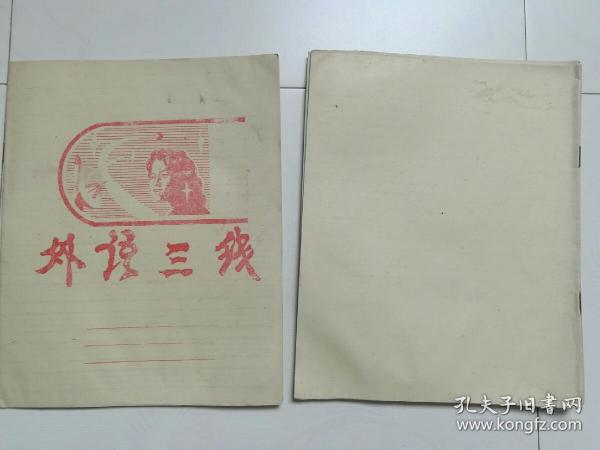 外语三线
孔夫子旧书网
www.kongfz.com